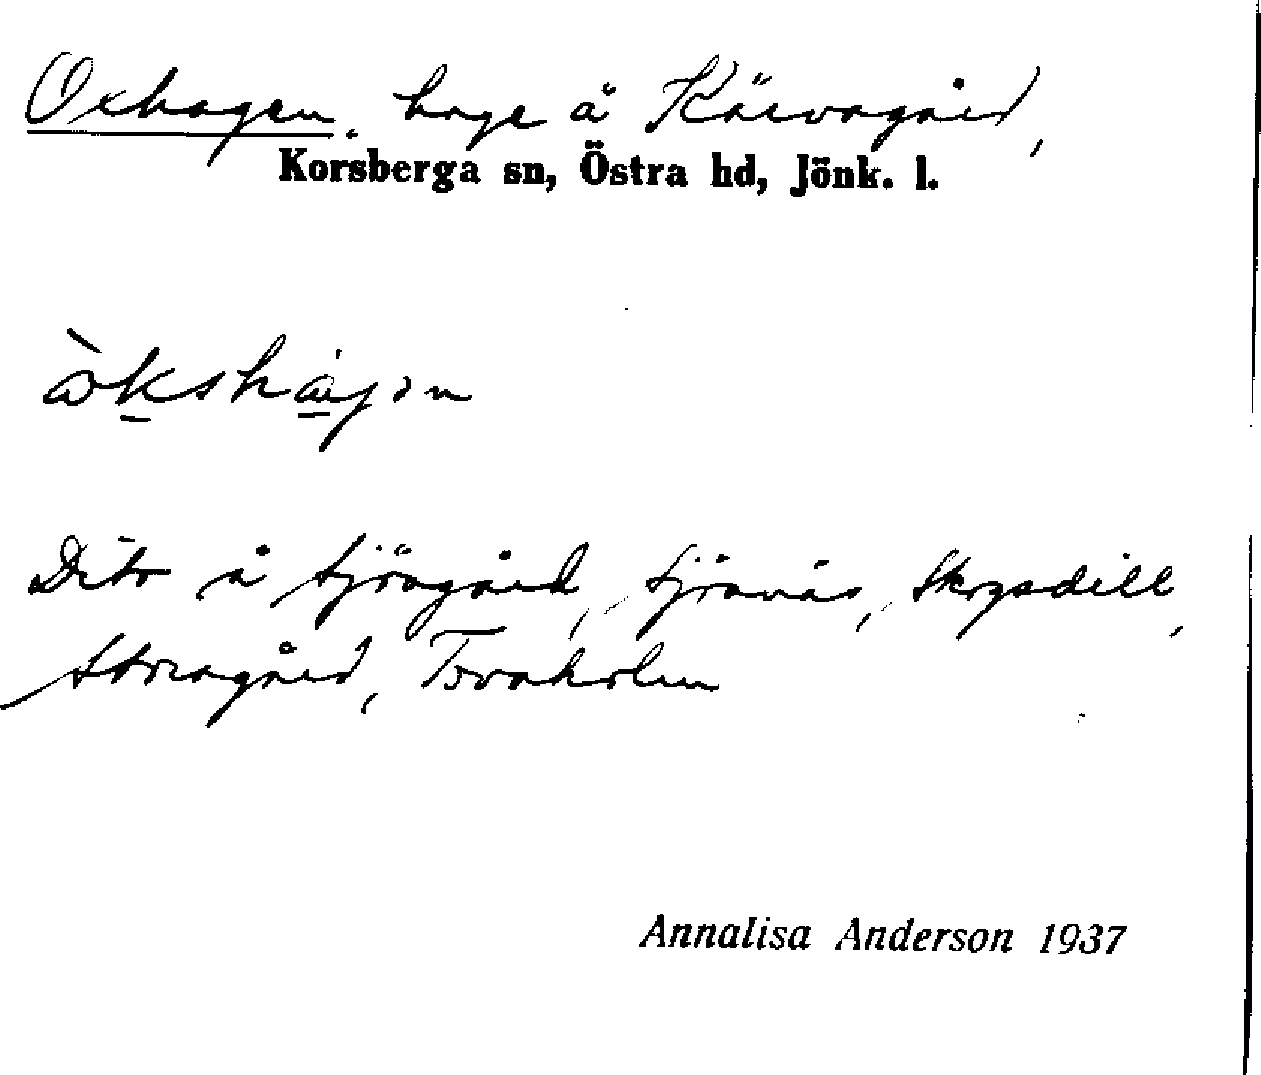 Oxhagen. hage å Kärvagård,
Korsberga sn, Östra hd, Jönk. l.
Dito å Sjöagård, Sjöanäs, Skogsdill,
Storagård,
Annalisa Anderson 1937